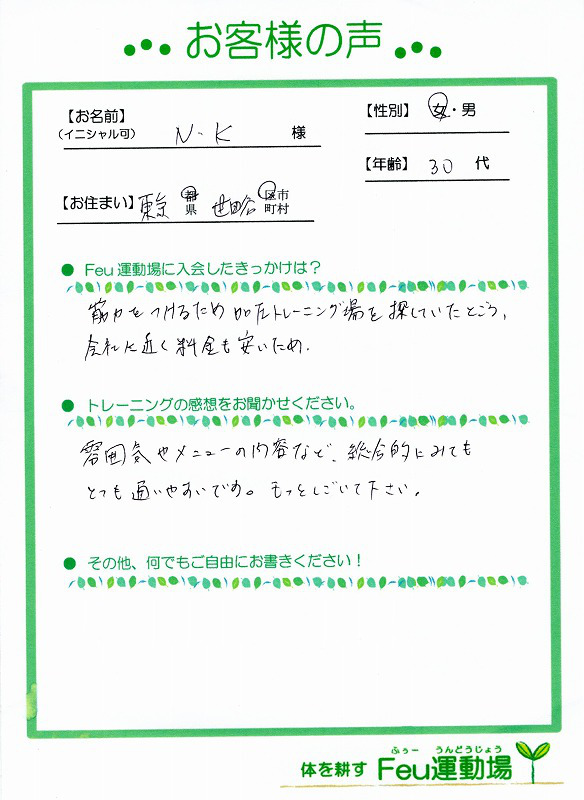 お客様の声
【お名前】
(イニシャル可)
N・K 様
【性別】 女・男
【年齢】 30 代
【お住まい】 東京 都県 世田谷 区市町村
● Feu運動場に入会したきっかけは？
筋力をつけるため 加圧トレーニング場を探していたところ、
会社に近く料金も安いため.
● トレーニングの感想をお聞かせください。
雰囲気やメニューの内容など、総合的にみても
とても通いやすいです。もっとしごいて下さい。
● その他、何でもご自由にお書きください！
ふぅー うんどうじょう
体を耕す Feu運動場